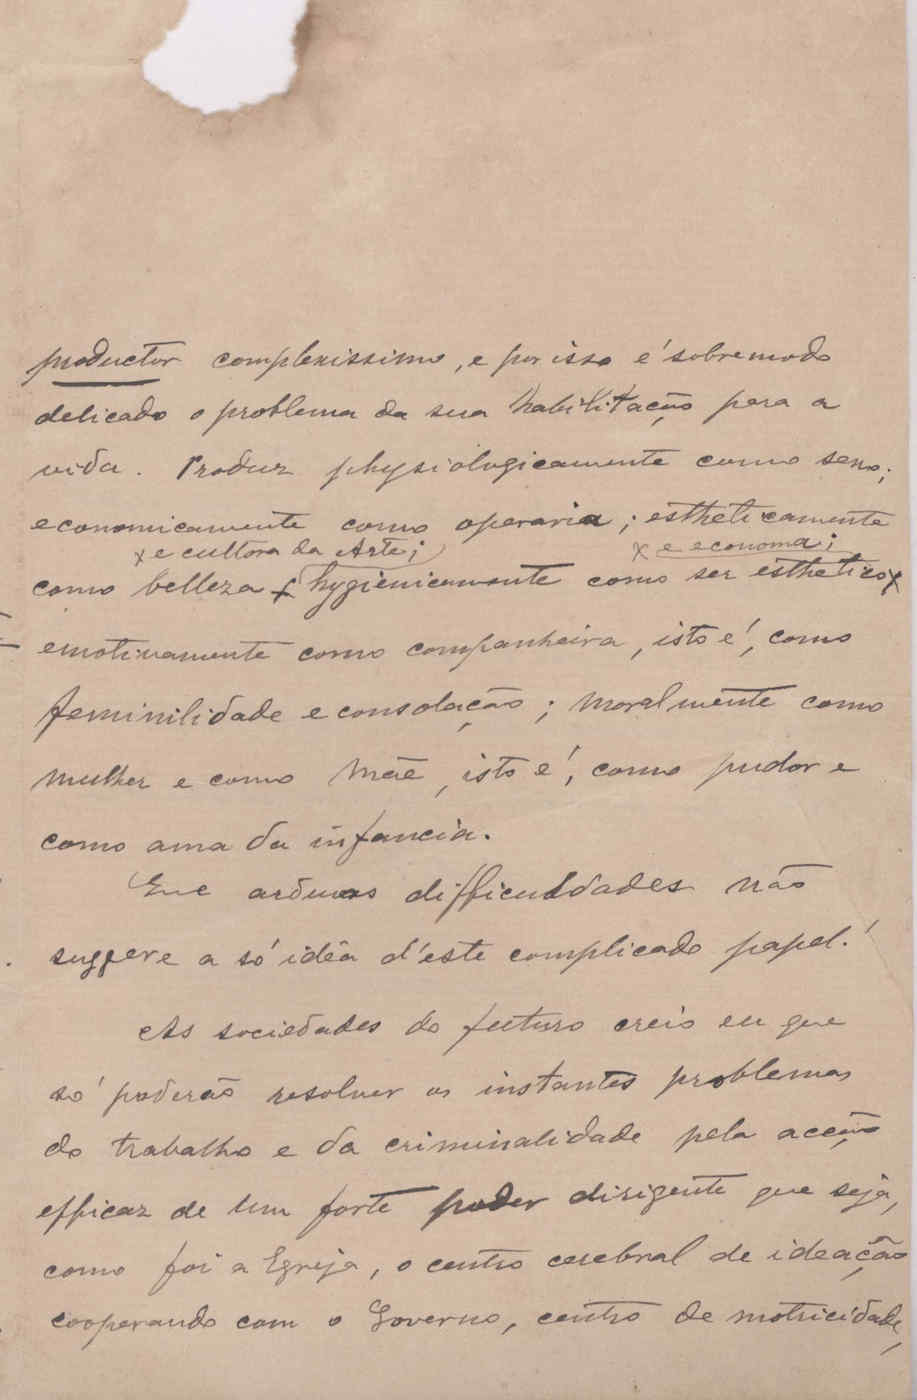 productor complexissimo, e por isso é sobremodo
delicado o problema da sua habilitação para a
vida. Produz physiologicamente como sexo;
economicamente como operaria; estheticamente
x e cultora da Arte; x e economa;
como belleza x hygienicamente como ser esthetico x
emotivamente como companheira, isto é, como
feminilidade e consolação; moralmente como
mulher e como Mãe, isto é, como pudor e
como ama da infancia.
Que arduas difficuldades não
suggere a só idéa d'este complicado papel!
As sociedades do futuro creio eu que
só poderão resolver os instantes problemas
do trabalho e da criminalidade pela acção
efficaz de um forte poder dirigente que seja,
como foi a Egreja, o centro cerebral de ideação
cooperando com o Governo, centro de motricidade,